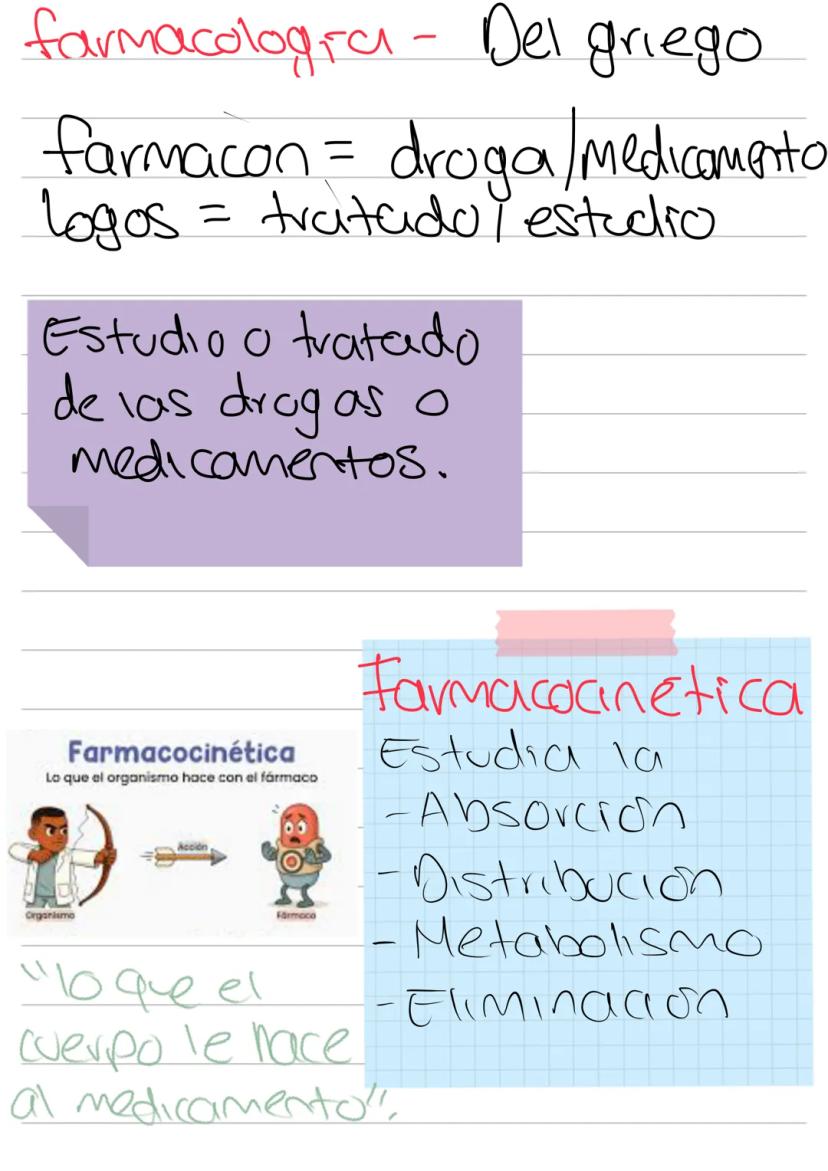 farmacología - Del griego
farmacon = droga/medicamento
logos = tratado/estudio
Estudio o tratado
de las drogas o
medicamentos.
Farmacocinética
Estudia la
-Absorción
-Distribución
-Metabolismo
-Eliminación
Farmacocinética
Lo que el organismo hace con el fármaco
Acción
Organismo
Fármaco
"lo que el
cuerpo le hace
al medicamento".